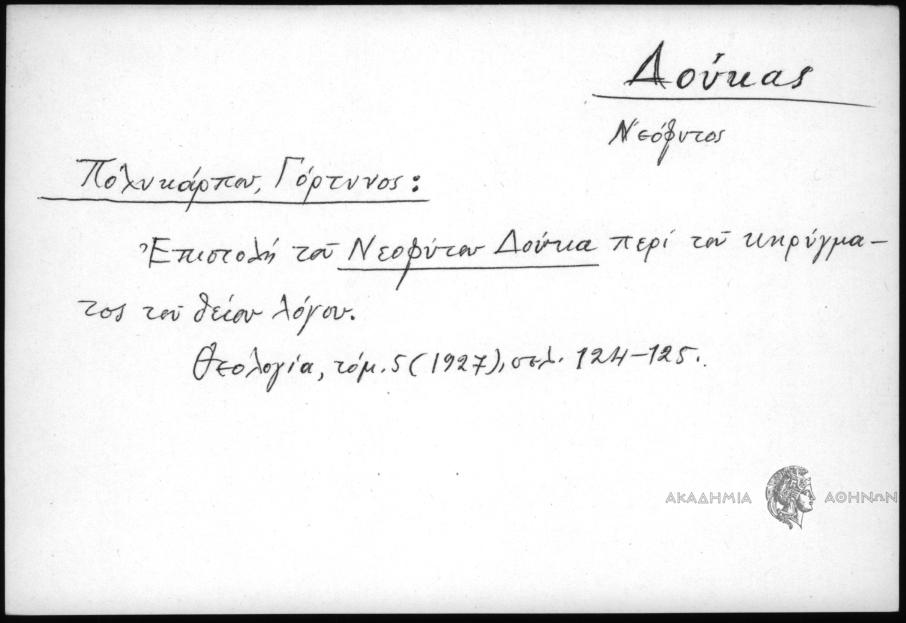 Δούκας
Νεόφυτος
Πολυκάρπου, Γόρτυνος:
Ἐπιστολή τοῦ Νεοφύτου Δούκα περί τοῦ κηρύγμα-
τος τοῦ θείου λόγου.
Θεολογία, τόμ. 5 (1927), σελ. 124-125.
ΑΚΑΔΗΜΙΑ ΑΘΗΝΩΝ